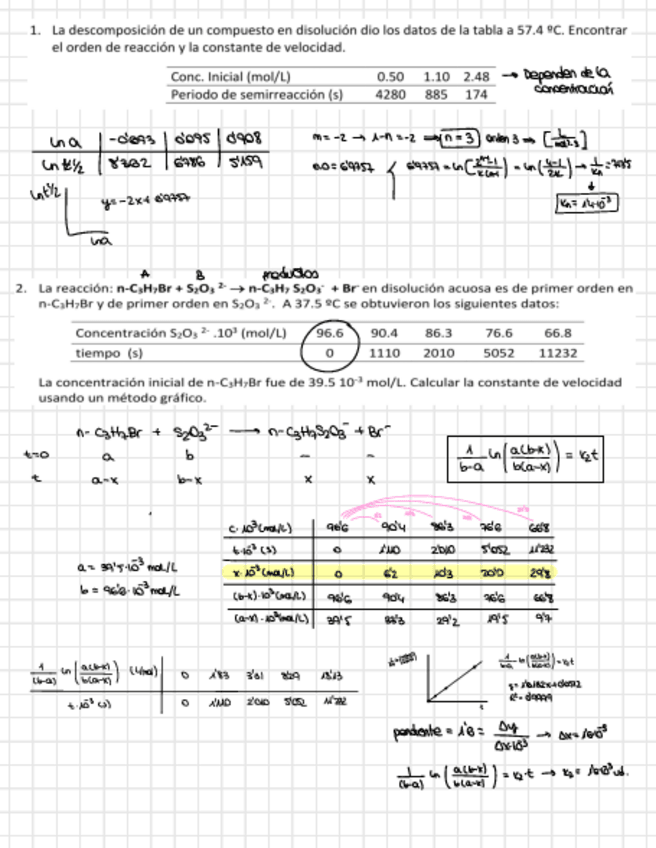 1. La descomposición de un compuesto en disolución dio los datos de la tabla a 57.4 ºC. Encontrar
el orden de reacción y la constante de velocidad.
Conc. Inicial (mol/L) 0.50 1.10 2.48 → Dependen de la
Periodo de semirreacción (s) 4280 885 174 concentración
ln a -0'693 0'095 0'908
ln t1/2 8'362 6'786 5'159
m = -2 → 1-n = -2 → n = 3 orden 3 →
ln t1/2
y = -2x + 6'9757
ln a
A B productos
2. La reacción: n-C3H7Br + S2O3 2- → n-C3H7 S2O3- + Br- en disolución acuosa es de primer orden en
n-C3H7Br y de primer orden en S2O3 2-. A 37.5 ºC se obtuvieron los siguientes datos:
Concentración S2O3 2- .10³ (mol/L) 96.6 90.4 86.3 76.6 66.8
tiempo (s) 0 1110 2010 5052 11232
La concentración inicial de n-C3H7Br fue de 39.5 10-3 mol/L. Calcular la constante de velocidad
usando un método gráfico.
n-C3H7Br + S2O3 2- → n-C3H7S2O3- + Br-
t=0 a b - -
t a-x b-x x x
1/(b-a) ln (a(b-x)/b(a-x)) = k2t
c·10³ (mol/L) 96'6 90'4 86'3 76'6 66'8
t·10-3 (s) 0 1'110 2'010 5'052 11'232
a = 39'5·10-3 mol/L
x·10³ (mol/L) 0 6'2 10'3 20'0 29'8
b = 96'6·10-3 mol/L
(b-x)·10³ (mol/L) 96'6 90'4 86'3 76'6 66'8
(a-x)·10³ (mol/L) 39'5 33'3 29'2 19'5 9'7
1/(b-a) ln (a(b-x)/b(a-x)) (L/mol) 0 1'83 3'31 8'29 18'13
t·10-3 (s) 0 1'110 2'010 5'052 11'232
pendiente = 1'6 = Δy/Δx·10³
1/(b-a) ln (a(b-x)/b(a-x)) = k2·t